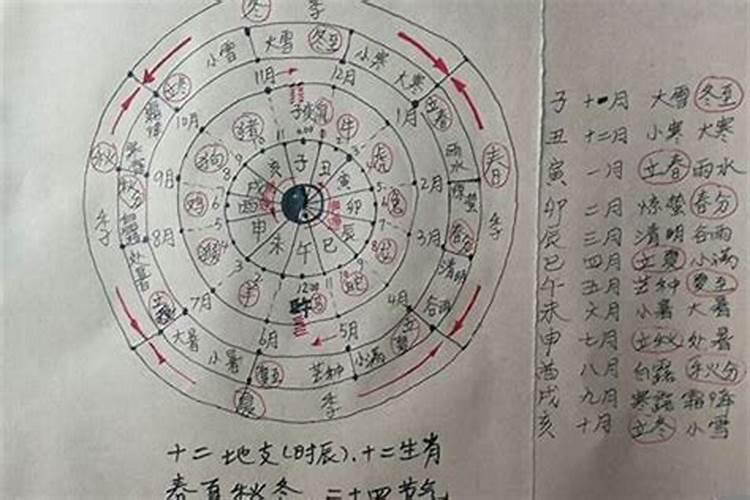 冬 季
小雪 大雪 冬至 小寒 大寒
立冬 11月 12月 1月 立春
10月 子 鼠 牛
猪 虎 雨水
秋 狗 亥 子 丑 寅 2月 春
9月 戌 惊蛰
秋分 鸡 酉 卯 兔
季 8月 申 辰 3月 春分 季
处暑 猴 未 午 巳 清明
羊 蛇 谷雨
7月 12:00 4月
大暑 6月 5月 立夏
小暑 夏至 芒种 小满
夏 季
子 十一月 大雪 冬至
丑 十二月 小寒 大寒
寅 一月 立春 雨水
卯 二月 惊蛰 春分
辰 三月 清明 谷雨
巳 四月 立夏 小满
午 五月 芒种 夏至
未 六月 小暑 大暑
申 七月 立秋 处暑
酉 八月 白露 秋分
戌 九月 寒露 霜降
亥 十月 立冬 小雪
十二地支(时辰)、十二生肖
春夏秋冬 二十四节气